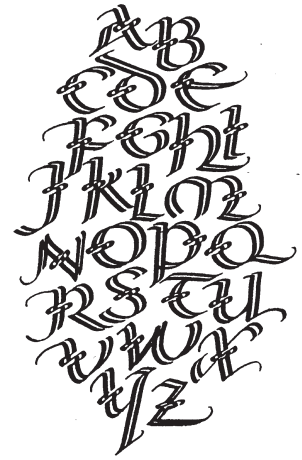 AB
CDE
FGHI
JKLM
NOPQ
RSTU
VWX
YZ